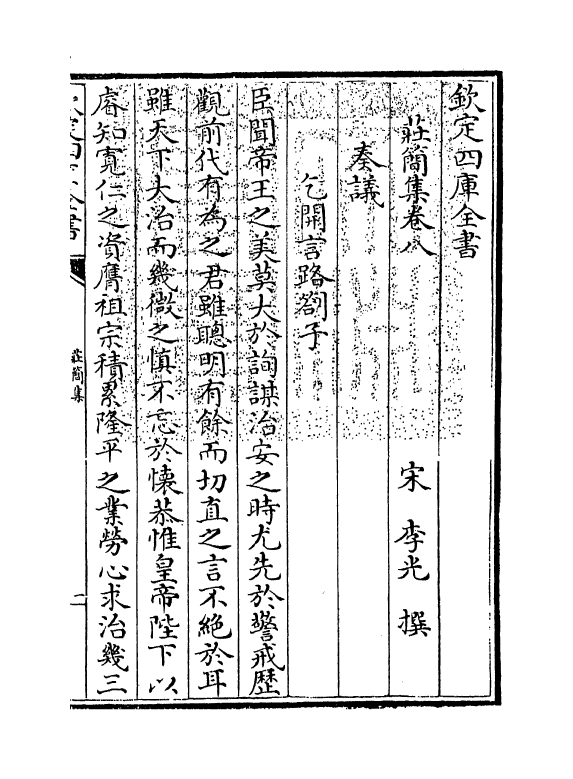 欽定四庫全書
莊簡集卷八
宋 李光 撰
奏議
乞開言路劄子
臣聞帝王之美莫大於詢謀治安之時尤先於警戒歷
觀前代有為之君雖聰明有餘而切直之言不絶於耳
雖天下大治而幾微之慎不忘於懐恭惟皇帝陛下以
睿知寛仁之資膺祖宗積累隆平之業勞心求治幾三
欽定四庫全書
莊簡集